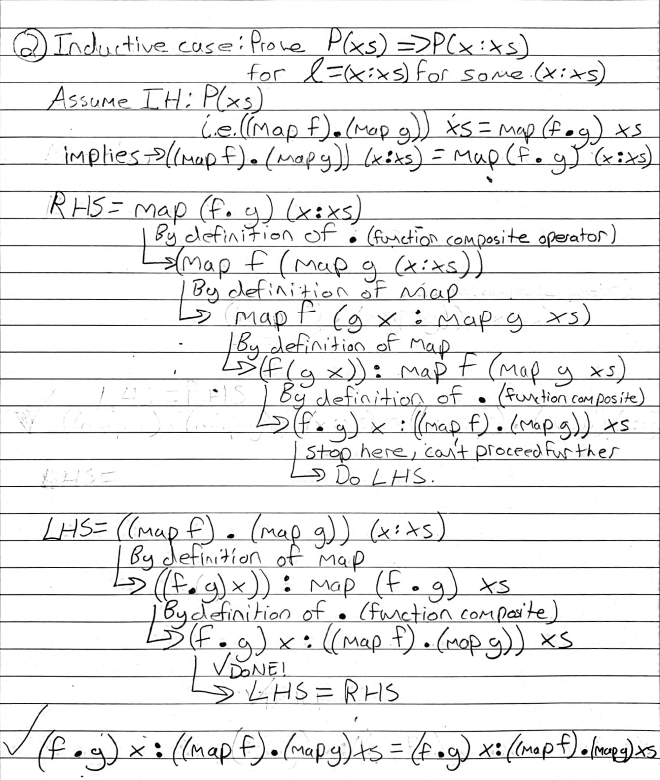 ② Inductive case: Prove P(xs) => P(x:xs)
for l=(x:xs) for some (x:xs)
Assume IH: P(xs)
i.e. ((map f).(map g)) xs = map (f.g) xs
implies → ((map f).(map g)) (x:xs) = map (f.g) (x:xs)
RHS = map (f.g) (x:xs)
By definition of . (function composite operator)
→ (map f (map g (x:xs))
By definition of map
→ map f (g x : map g xs)
By definition of map
→ (f(g x)) : map f (map g xs)
By definition of . (function composite)
→ (f.g) x : ((map f).(map g)) xs
stop here, can't proceed further
→ Do LHS.
LHS = ((map f) . (map g)) (x:xs)
By definition of map
→ ((f.g)x)) : map (f.g) xs
By definition of . (function composite)
→ (f.g) x : ((map f).(map g)) xs
✓DONE!
→ LHS = RHS
✓ (f.g) x : ((map f).(map g) xs = (f.g) x:((map f).(map g) xs